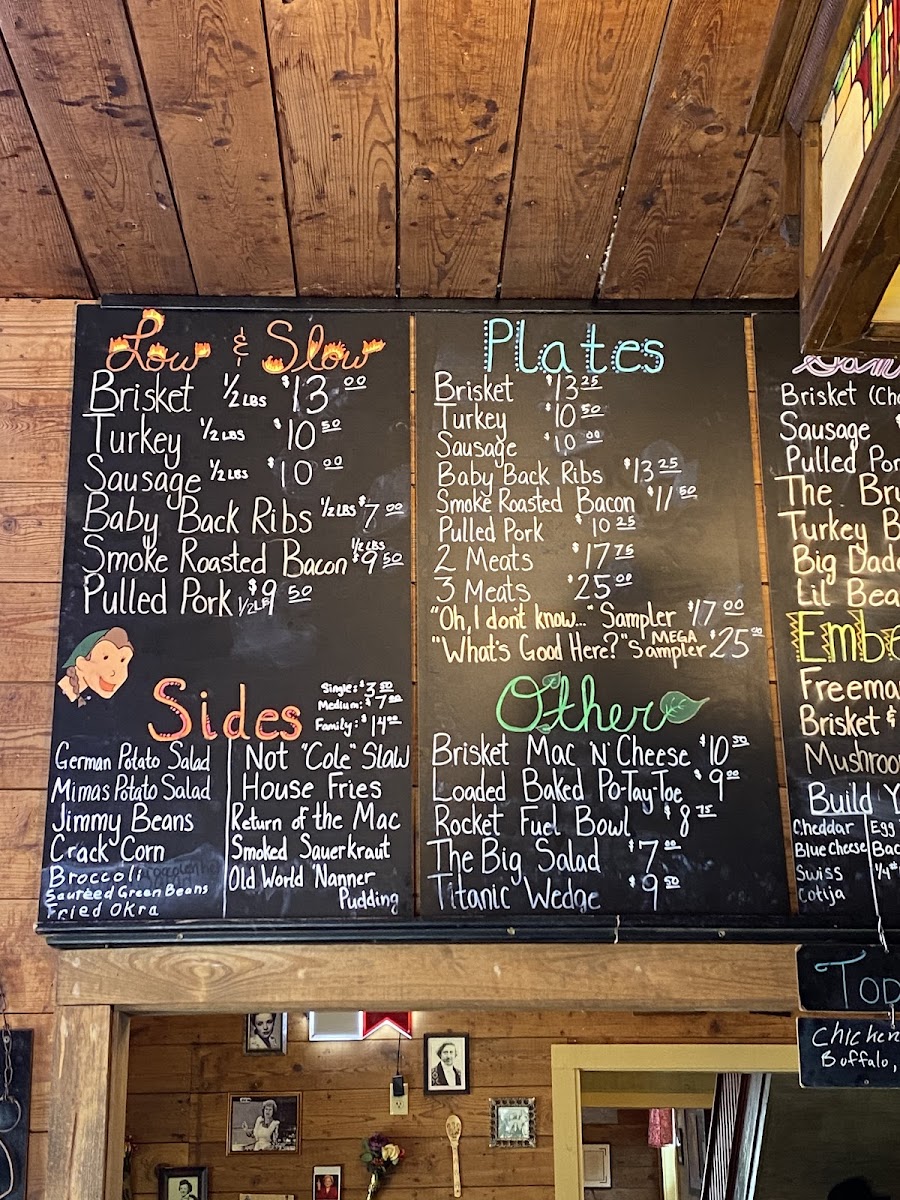 Low & Slow
Brisket ½ LBS $13 00
Turkey ½ LBS $10 50
Sausage ½ LBS $10 00
Baby Back Ribs ½ LBS $7 00
Smoke Roasted Bacon ½ LBS $9 50
Pulled Pork ½ LB $9 50
Sides
Single: $3 50
Medium: $7 00
Family: $14 00
German Potato Salad
Mimas Potato Salad
Jimmy Beans
Crack Corn
Broccoli
Sauteed Green Beans
Fried Okra
Not "Cole" Slaw
House Fries
Return of the Mac
Smoked Sauerkraut
Old World 'Nanner
Pudding
Plates
Brisket $13 25
Turkey $10 50
Sausage $10 00
Baby Back Ribs $13 25
Smoke Roasted Bacon $11 50
Pulled Pork $10 25
2 Meats $17 75
3 Meats $25 00
"Oh, I don't know..." Sampler $17 00
"What's Good Here?" MEGA Sampler $25 00
Other
Brisket Mac 'N' Cheese $10 50
Loaded Baked Po-Tay-Toe $9 00
Rocket Fuel Bowl $8 75
The Big Salad $7 00
Titanic Wedge $9 50
Brisket (Cho
Sausage
Pulled Por
The Bru
Turkey B
Big Dadd
Lil Bea
Embe
Freema
Brisket &
Mushroo
Build Y
Cheddar
Blue Cheese
Swiss
Cotija
Egg
Bac
¼ #
Tod
Chicken
Buffalo,